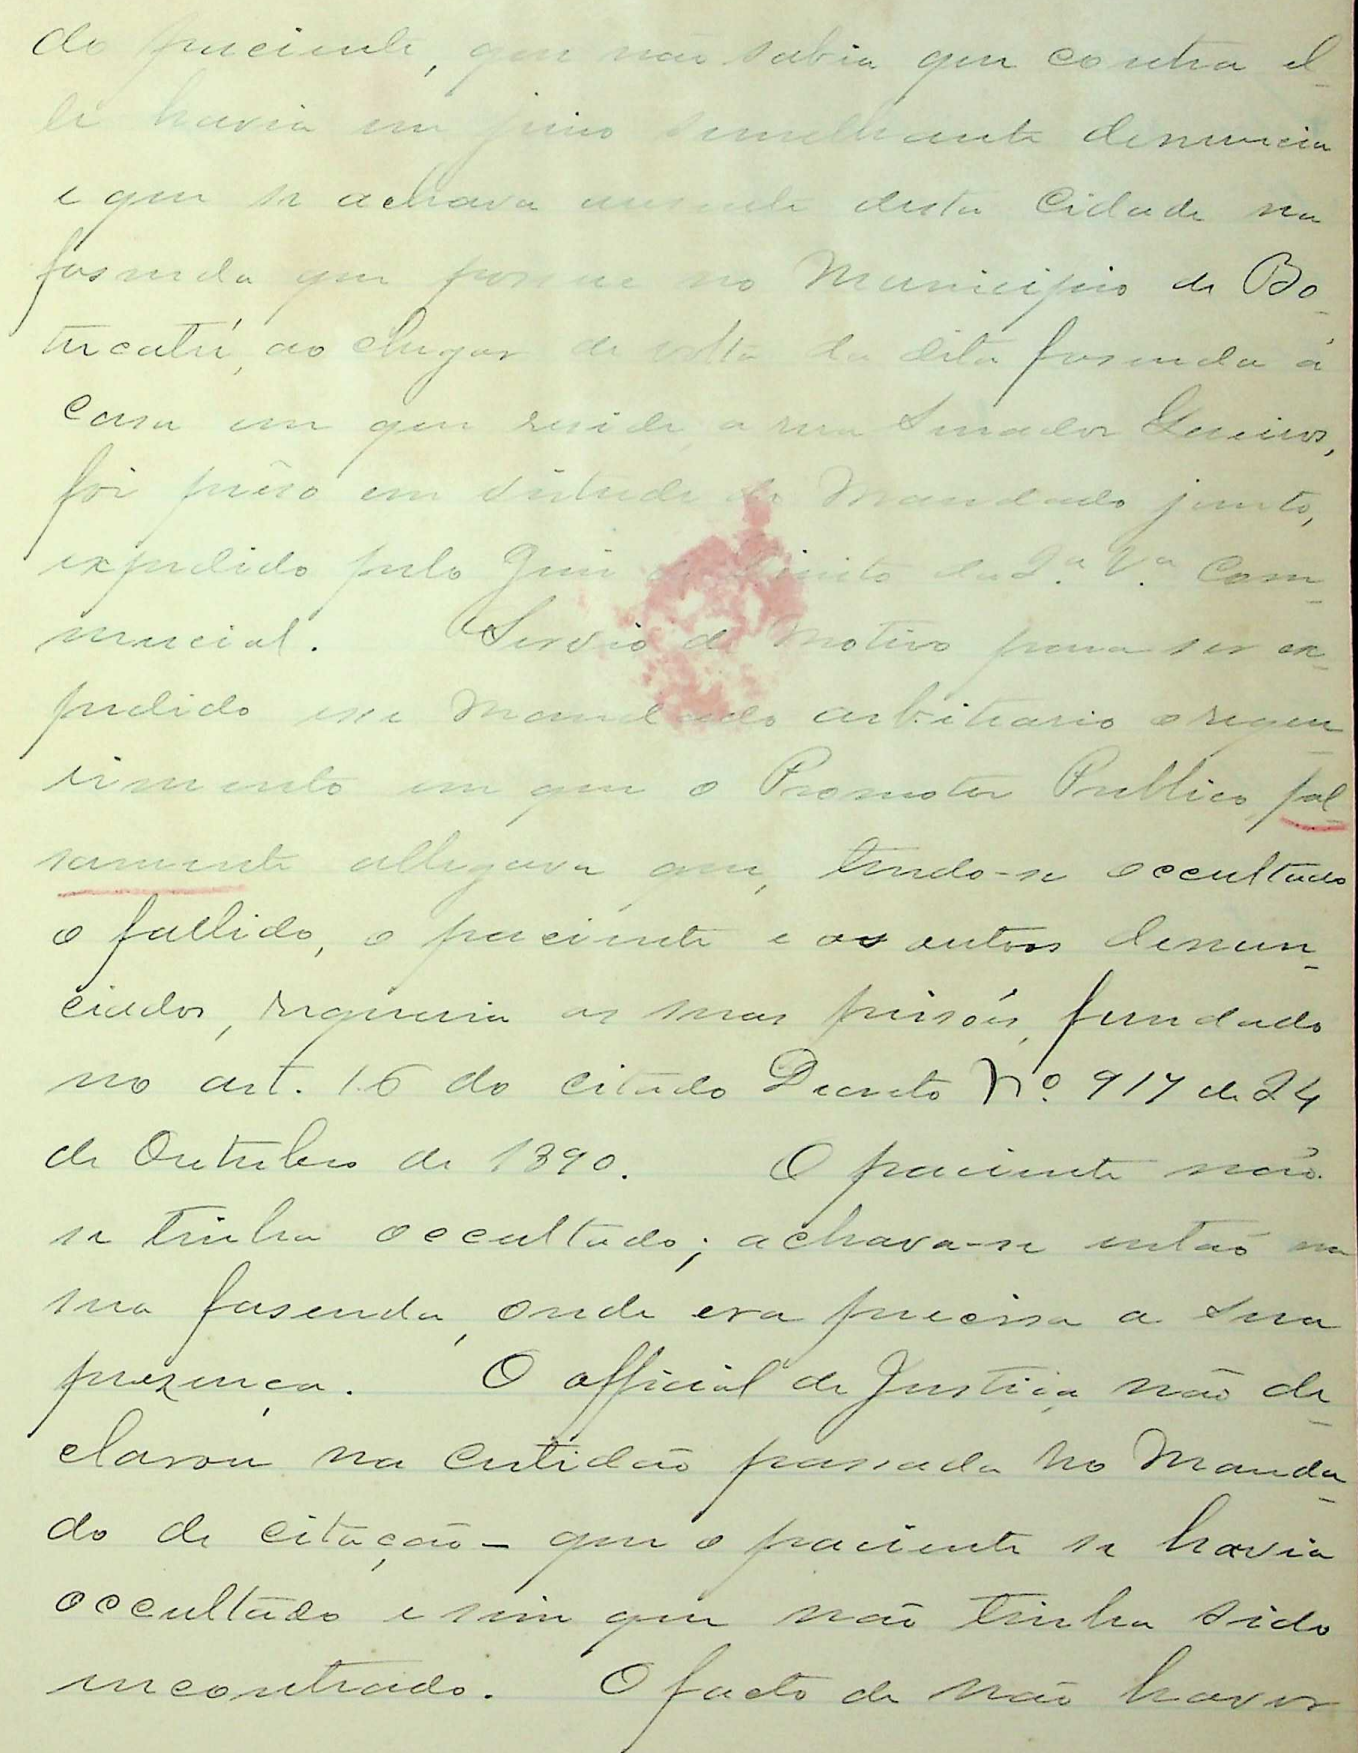 do paciente, que não sabia que contra el-
le havia em juizo semelhante denuncia
e que se achava ausente desta Cidade na
fasenda que possue no Municipio de Bo-
tucatú, ao chegar de volta da dita fasenda á
casa em que reside, a rua Senador Queiros,
foi prêso em virtude do Mandado junto,
expedido pelo Juiz de Direito da 2.ª V.ª Com-
mercial. Servio de motivo para ser ex-
pedido esse Mandado arbitrario o reque-
rimento em que o Promotor Publico fal-
samente allegava que, tendo-se occultado
o fallido, o paciente e os outros denun-
ciados, requeria as suas prisões, fundado
no art. 16 do citado Decreto Nº. 917 de 24
de Outubro de 1890. O paciente não
se tinha occultado; achava-se então na
sua fasenda, onde era precisa a sua
presença. O official de Justiça não de-
clarou na certidão passada no Manda-
do de citação - que o paciente se havia
occultado e sim que não tinha sido
encontrado. O facto de não haver